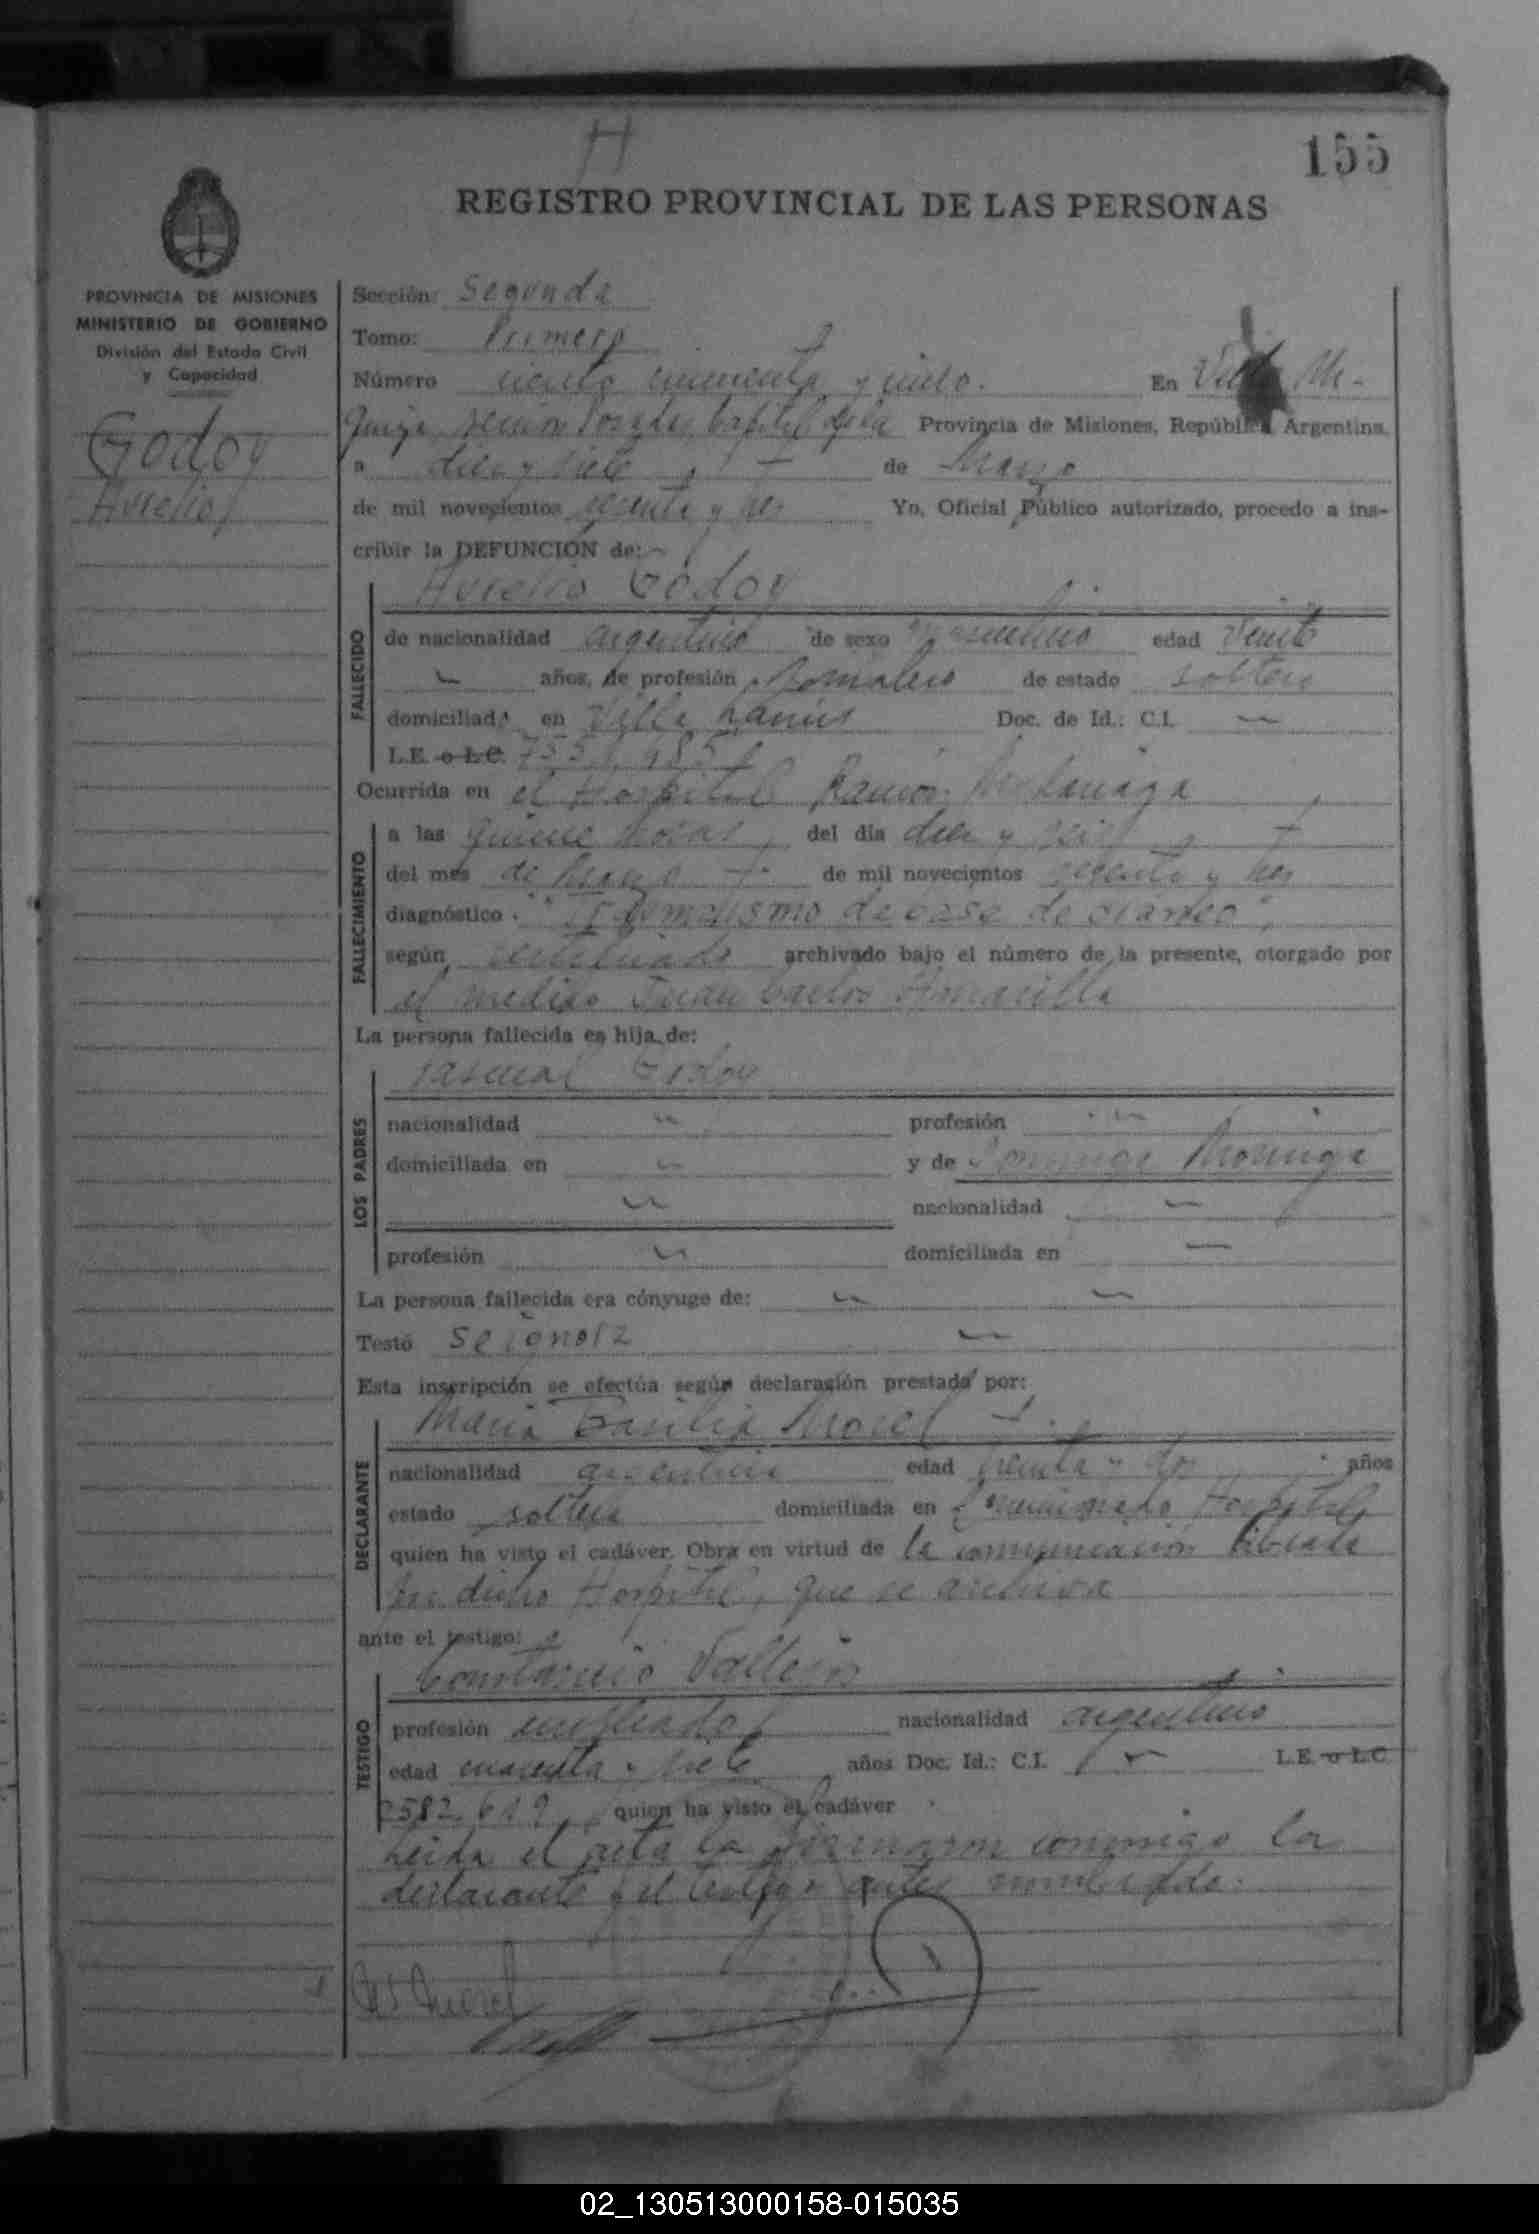 H
155
REGISTRO PROVINCIAL DE LAS PERSONAS
PROVINCIA DE MISIONES
MINISTERIO DE GOBIERNO
División del Estado Civil
y Capacidad
Godoy
Aurelio
Sección: Segunda
Tomo: Primero
Número ciento cincuenta y cinco. En Villa
Capital de la Provincia de Misiones, República Argentina,
a diez y siete de Marzo
de mil novecientos sesenta y tres Yo, Oficial Público autorizado, procedo a ins-
cribir la DEFUNCIÓN de:
Aurelio Godoy
FALLECIDO
de nacionalidad argentino de sexo masculino edad veinte
años, de profesión Jornalero de estado soltero
domiciliado en Villa Lanús Doc. de Id.: C.I. —
L.E. o L.C.
Ocurrida en el Hospital Ramón Madariaga
FALLECIMIENTO
a las quince horas del día diez y seis
del mes de Marzo de mil novecientos sesenta y tres
diagnóstico "Traumatismo de base de cráneo",
según certificado archivado bajo el número de la presente, otorgado por
el médico Juan Carlos Amarilla
La persona fallecida es hija de:
LOS PADRES
Pascual Godoy
nacionalidad — profesión —
domiciliada en — y de Dominga
— nacionalidad —
profesión — domiciliada en —
La persona fallecida era cónyuge de: — —
Testó Se ignora —
Esta inscripción se efectúa según declaración prestada por:
DECLARANTE
Maria Basilia Morel
nacionalidad argentina edad treinta y dos años
estado soltera domiciliada en Hospital
quien ha visto el cadáver. Obra en virtud de la comunicación librada
por dicho Hospital, que se archiva
ante el testigo:
TESTIGO
Constancio Vallejos
profesión empleado nacionalidad argentino
edad cuarenta y siete años Doc. Id.: C.I. — L.E. o L.C.
2582.619 quien ha visto el cadáver
Leida el acta la firmaron conmigo la
declarante y el testigo antes nombrado.
Morel
02_130513000158-015035